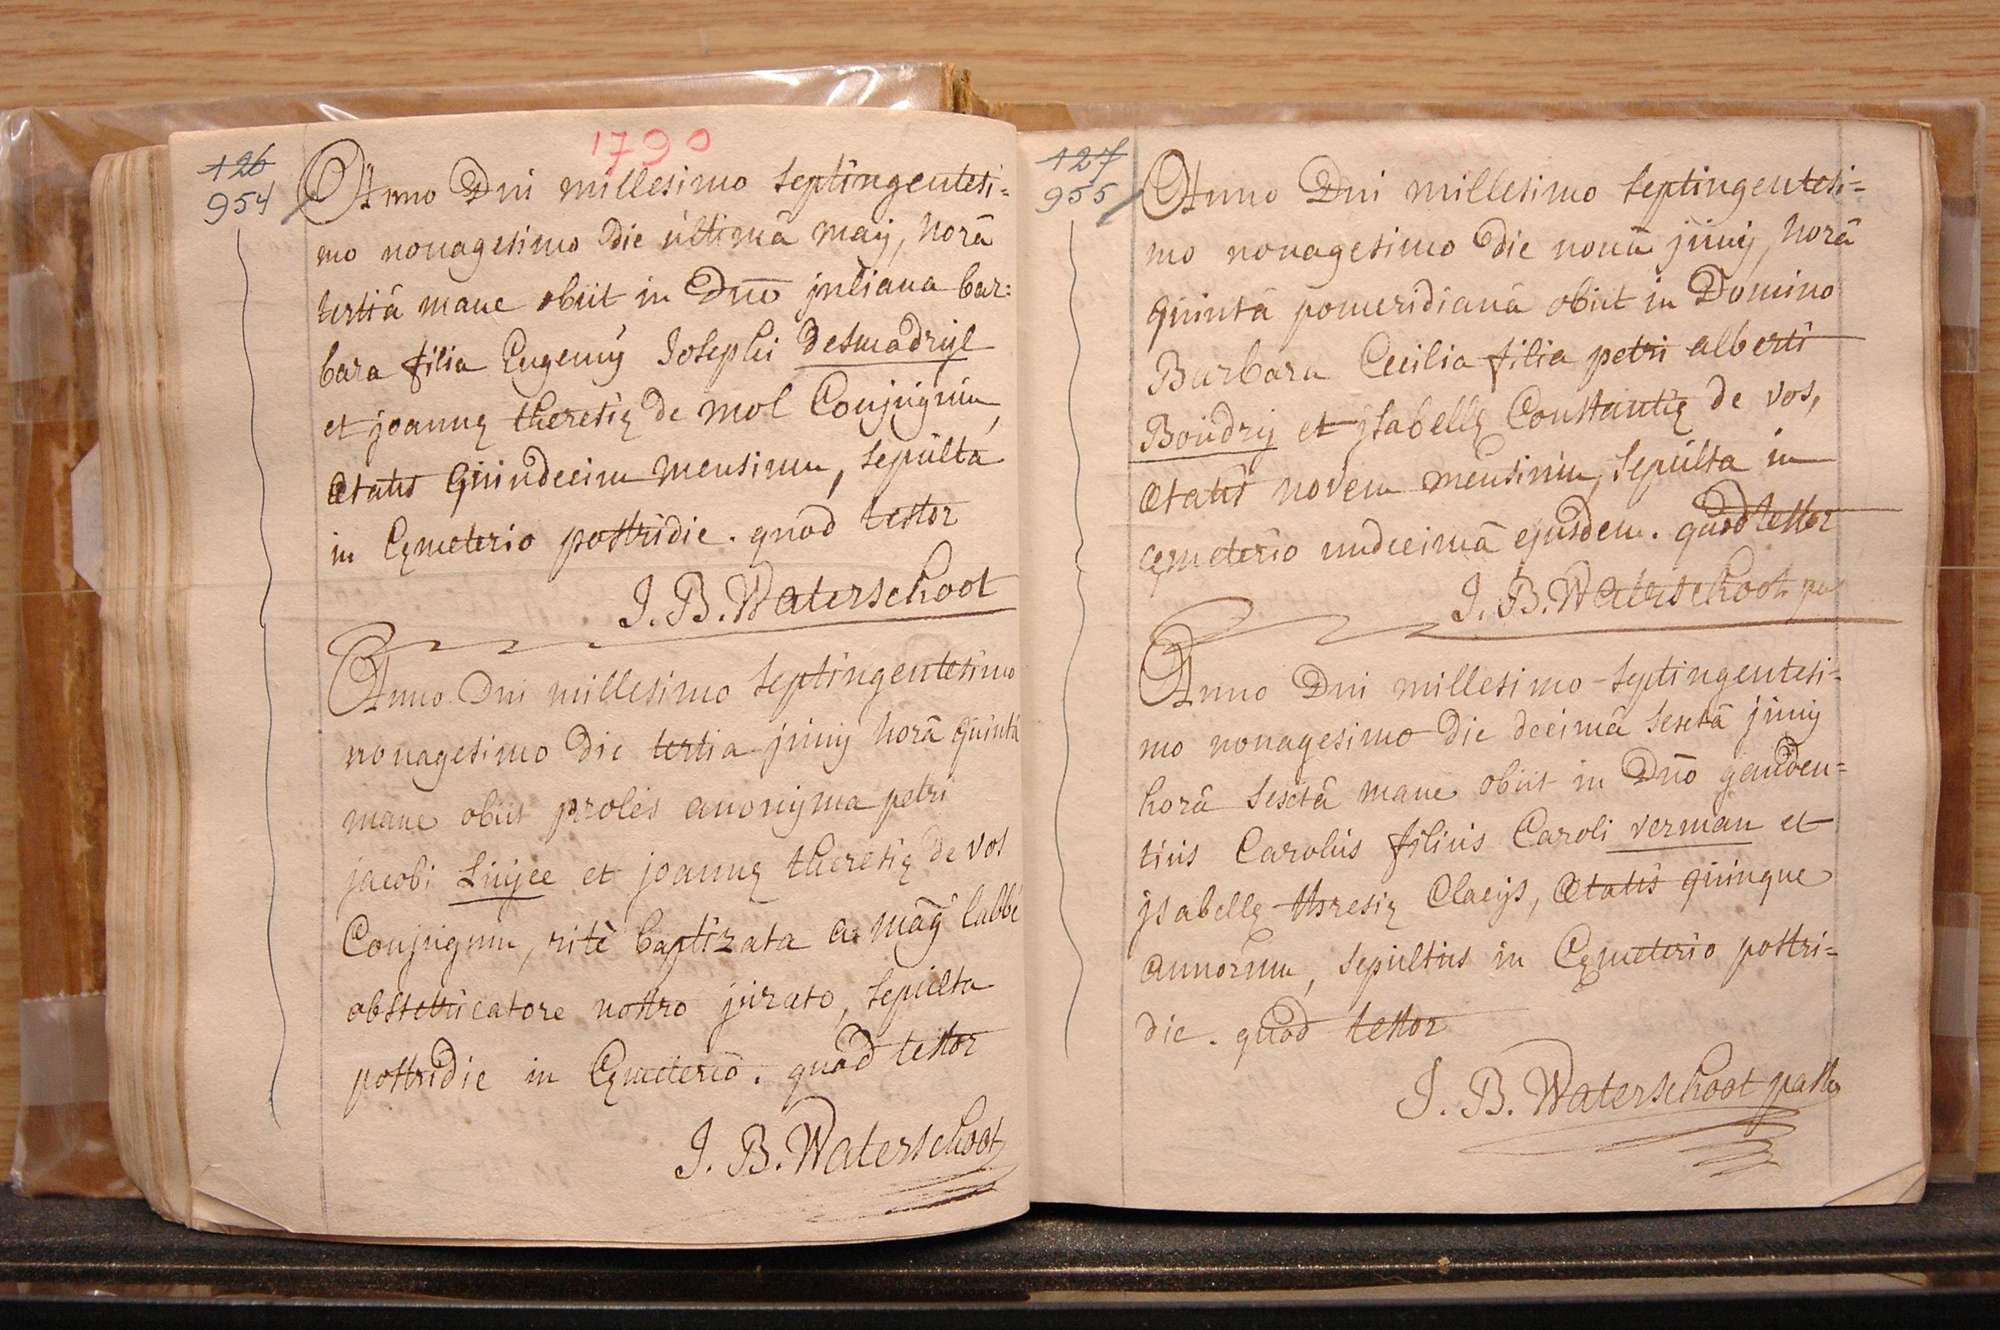 1790
126
954
Anno Dni millesimo septingentesi=
mo nonagesimo die ultimâ maij, horâ
tertiâ mane obiit in Dno juliana bar:
bara filia Eugenij Josephi desmadrijl
et joannę theresię de mol Conjugum,
ætatis quindecim mensium, sepulta
in Cęmeterio postridie. quod testor
J. B. Waterschoot
Anno Dni millesimo septingentesimo
nonagesimo die tertia junij horâ quintâ
mane obiit proles anonijma petri
jacobi Luijce et joannę theresię de vos
Conjugum, ritè baptizata a mag labbé
obstetricatore nostro jurato, sepulta
postridie in Cęmeterio. quod testor
J. B. Waterschoot
127
955
Anno Dni millesimo septingentesi=
mo nonagesimo die nonâ junij, horâ
quintâ pomeridianâ obiit in Domino
Barbara Cecilia filia petri alberti
Boudrij et ysabellę Constantię de vos,
ætatis novem mensium, sepulta in
cęmeterio undecimâ ejusdem. quod testor
J. B. Waterschoot pas
Anno Dni millesimo septingentesi=
mo nonagesimo die decimâ sextâ junij
horâ sextâ mane obiit in Dno gauden=
tius Carolus filius Caroli verman et
ysabellę thresię Claeijs, ætatis quinque
annorum, sepultus in Cęmeterio postri=
die. quod testor
J. B. Waterschoot pastor